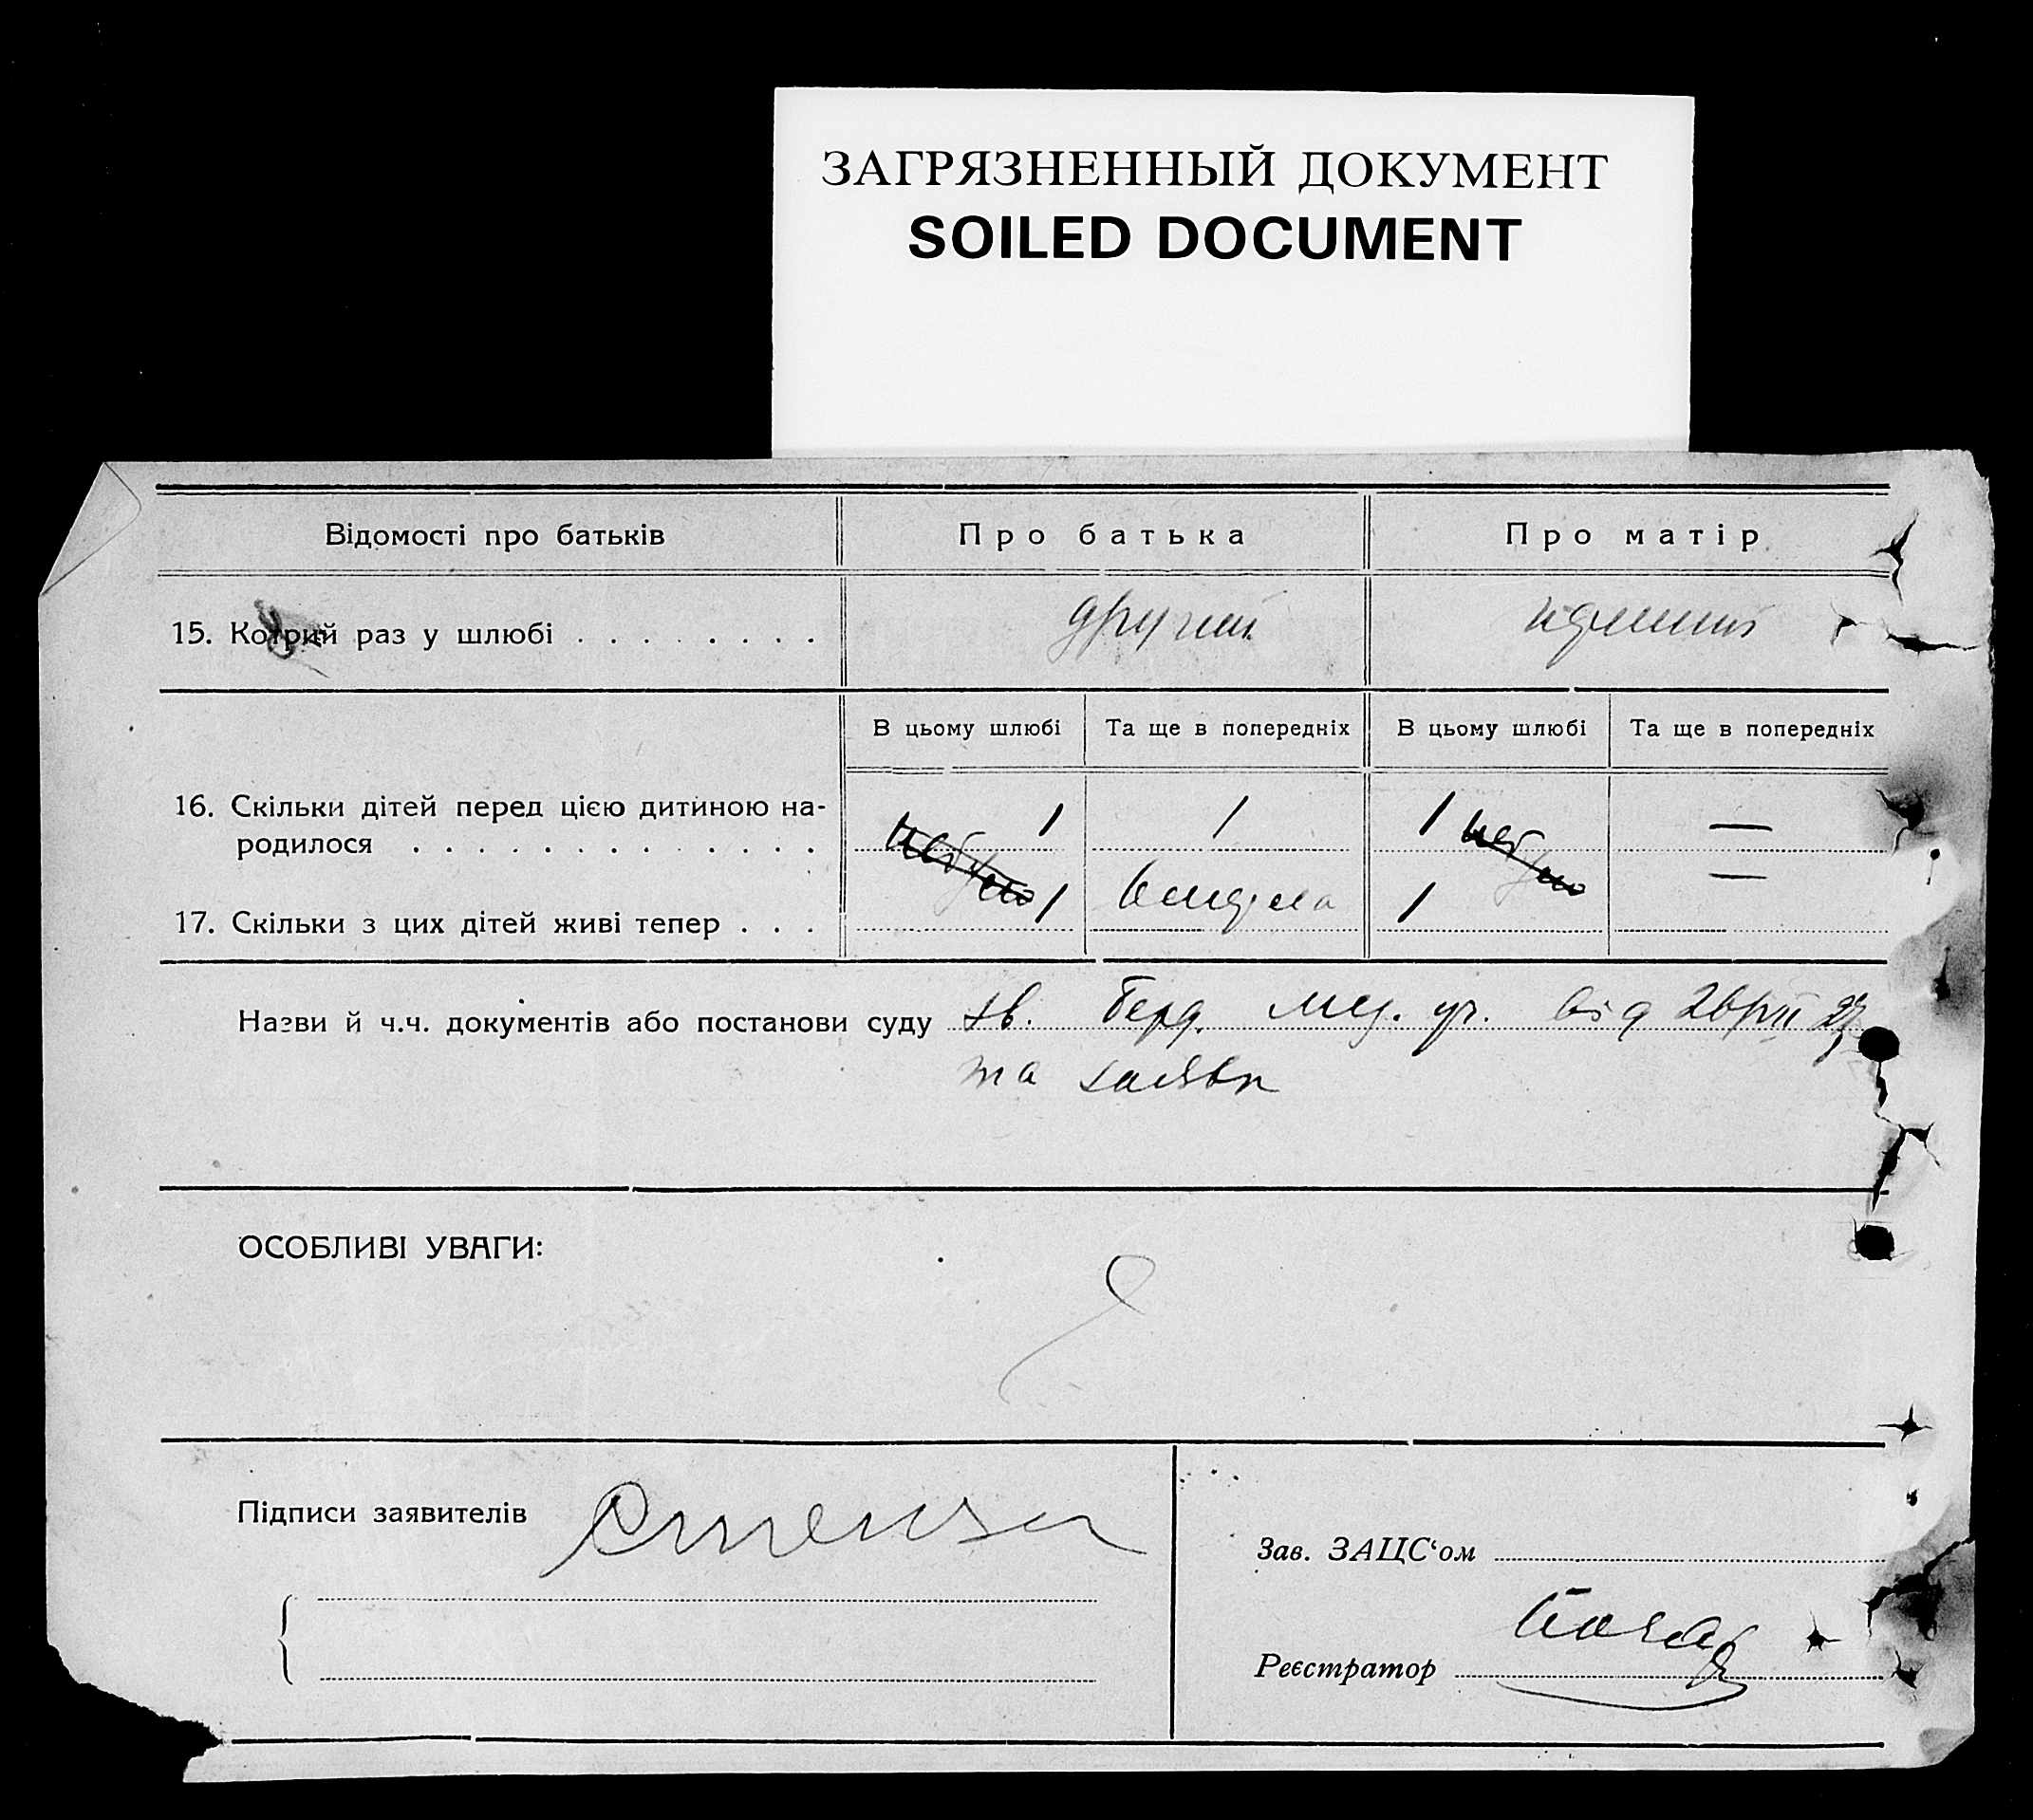 ЗАГРЯЗНЕННЫЙ ДОКУМЕНТ
SOILED DOCUMENT
Відомості про батьків Про батька Про матір
15. Котрий раз у шлюбі . . . . . . . . другий
В цьому шлюбі Та ще в попередніх В цьому шлюбі Та ще в попередніх
16. Скільки дітей перед цією дитиною на-
родилося . . . . . . . . . . . . . 1 1 1 —
17. Скільки з цих дітей живі тепер . . . 1 вмерла 1 —
Назви й ч.ч. документів або постанови суду зв. Берд. мед. уч. від 26/VII 27
та заяви
ОСОБЛИВІ УВАГИ:
Підписи заявителів
Зав. ЗАЦС‘ом
Реєстратор